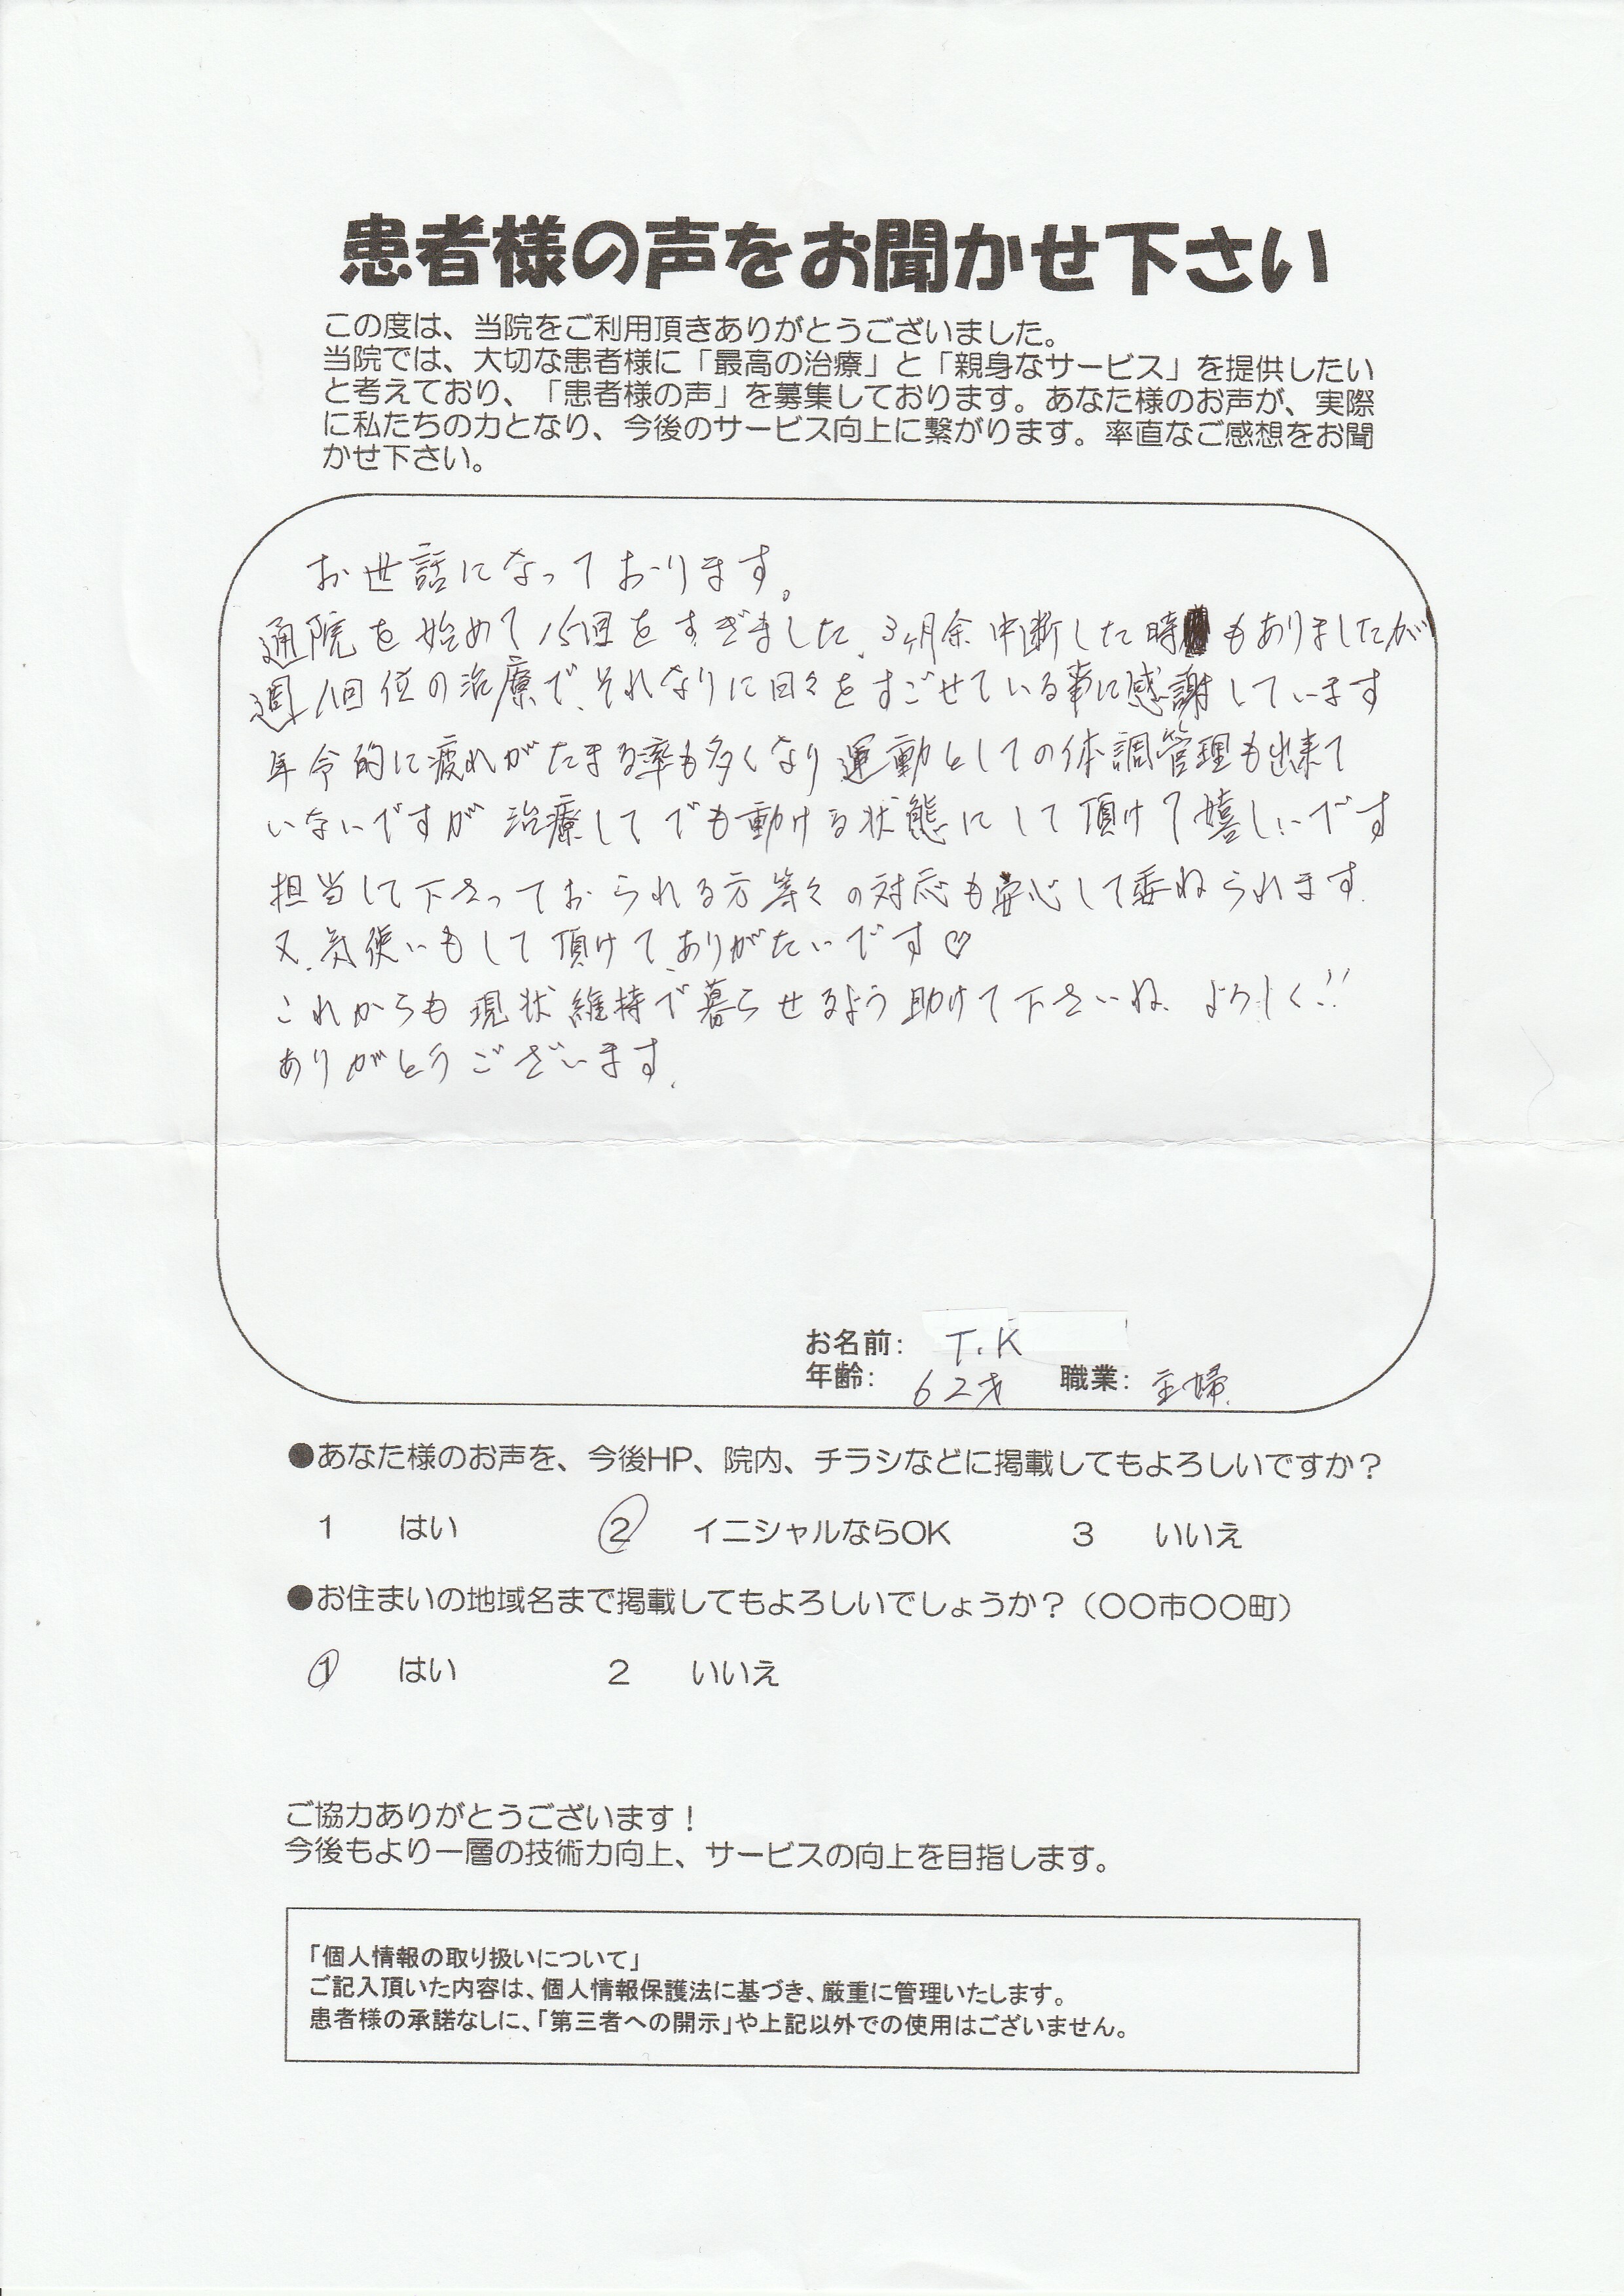 患者様の声をお聞かせ下さい
この度は、当院をご利用頂きありがとうございました。
当院では、大切な患者様に「最高の治療」と「親身なサービス」を提供したい
と考えており、「患者様の声」を募集しております。あなた様のお声が、実際
に私たちの力となり、今後のサービス向上に繋がります。率直なご感想をお聞
かせ下さい。
お世話になっております。
通院を始めて15回をすぎました。3ヶ月余中断した時もありましたが
週1回位の治療で、それなりに日々をすごせている事に感謝しています
年令的に疲れがたまる率も多くなり運動としての体調管理も出来て
いないですが治療してでも動ける状態にして頂けて嬉しいです
担当して下さっておられる方等々の対応も安心して委ねられます。
又、気使いもして頂けて、ありがたいです♡
これからも現状維持で暮らせるよう助けて下さいね、よろしく!!
ありがとうございます。
お名前: T.K
年齢: 62才 職業: 主婦
●あなた様のお声を、今後HP、院内、チラシなどに掲載してもよろしいですか？
1 はい 2 イニシャルならOK 3 いいえ
●お住まいの地域名まで掲載してもよろしいでしょうか？（〇〇市〇〇町）
1 はい 2 いいえ
ご協力ありがとうございます！
今後もより一層の技術力向上、サービスの向上を目指します。
「個人情報の取り扱いについて」
ご記入頂いた内容は、個人情報保護法に基づき、厳重に管理いたします。
患者様の承諾なしに、「第三者への開示」や上記以外での使用はございません。